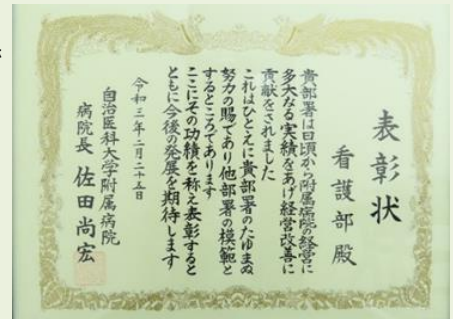 表彰状
看護部殿
貴部署は日頃から附属病院の経営に
多大なる実績をあげ経営改善に
貢献をされました
これはひとえに貴部署のたゆまぬ
努力の賜であり他部署の模範と
するところであります
ここにその功績を称え表彰すると
ともに今後の発展を期待します
令和三年二月二十五日
自治医科大学附属病院
病院長 佐田尚宏